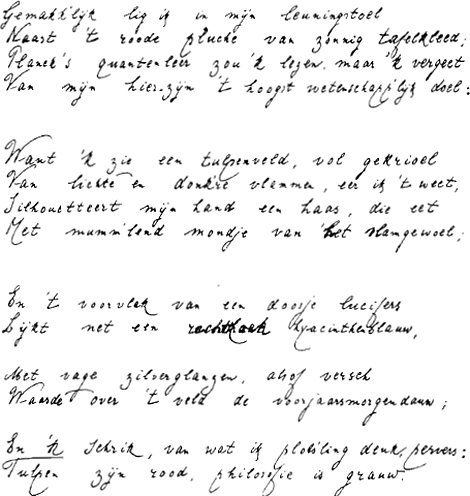 Gemakk'lijk lig ik in mijn leuningstoel
Naast 't roode pluche van zonnig tafelkleed;
Planck's quantenleer zou 'k lezen, maar 'k vergeet
Van mijn hier-zijn 't hoogst wetenschapp'lijk doel:
Want 'k zie een tulpenveld, vol gekrioel
Van lichte en donk're vlammen, eer ik 't weet,
Silhouetteert mijn hand een haas, die eet
Met mumm'lend mondje van het vlamgewoel;
En 't voorvlak van een doosje lucifers
Lijkt net een hyacinthenblauw,
Met vage zilverglanzen, alsof versch
Waarde over 't veld de voorjaarsmorgendauw;
En 'k schrik, van wat ik plots'ling denk, pervers:
Tulpen zijn rood, philosofie is grauw.